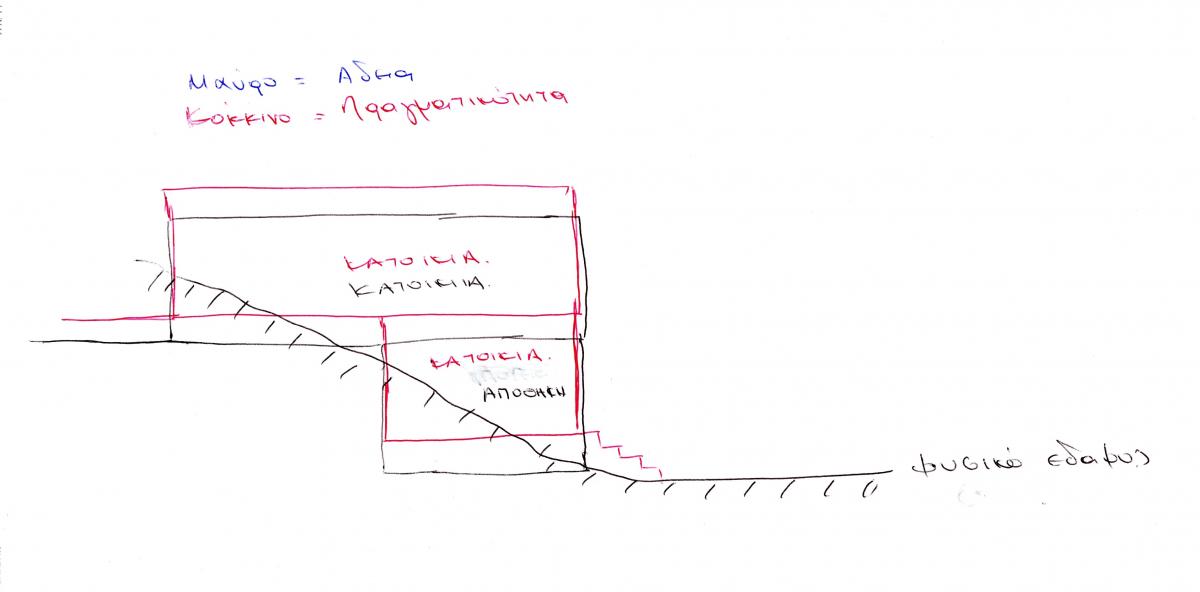 Μαύρο = Αδεια
Κόκκινο = Πραγματικότητα
ΚΑΤΟΙΚΙΑ.
ΚΑΤΟΙΚΙΑ.
ΚΑΤΟΙΚΙΑ.
ΑΠΟΘΗΚΗ
φυσικό εδαφος